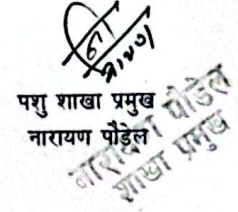 पशु शाखा प्रमुख
नारायण पौडेल
नारायण पौडेल
शाखा प्रमुख